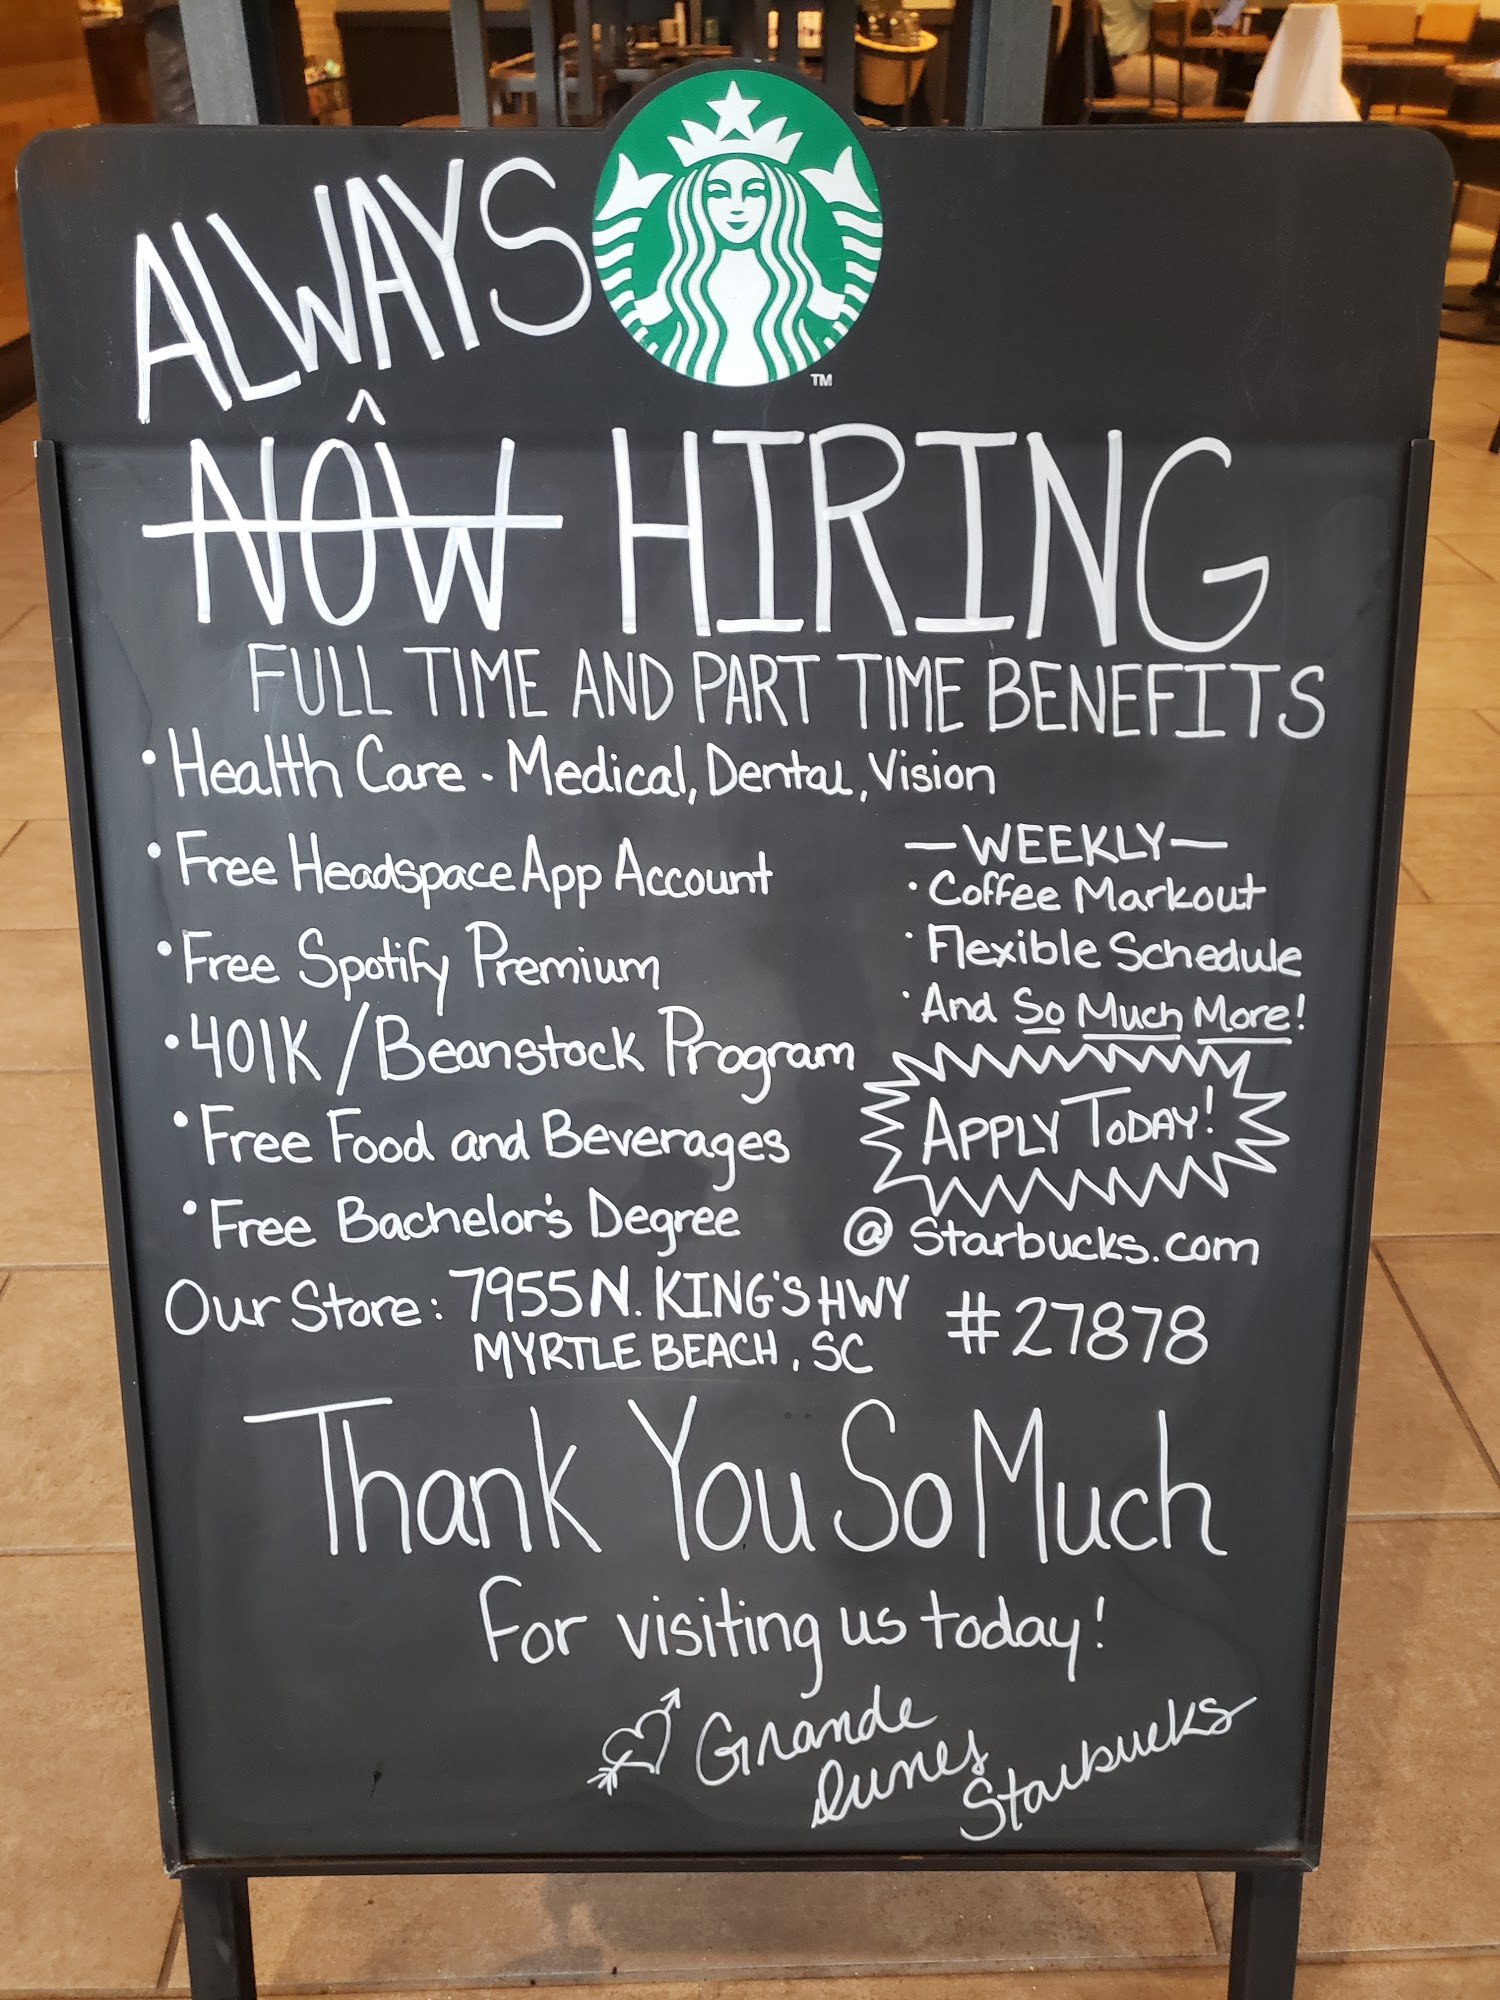 ALWAYS
TM
NOW HIRING
FULL TIME AND PART TIME BENEFITS
• Health Care - Medical, Dental, Vision
• Free Headspace App Account
• Free Spotify Premium
• 401K / Beanstock Program
• Free Food and Beverages
• Free Bachelor's Degree
— WEEKLY —
• Coffee Markout
• Flexible Schedule
• And So Much More!
APPLY TODAY!
@ Starbucks.com
Our Store: 7955 N. KING'S HWY
MYRTLE BEACH, SC
#27878
Thank You So Much
For visiting us today!
Grande
Dunes
Starbucks